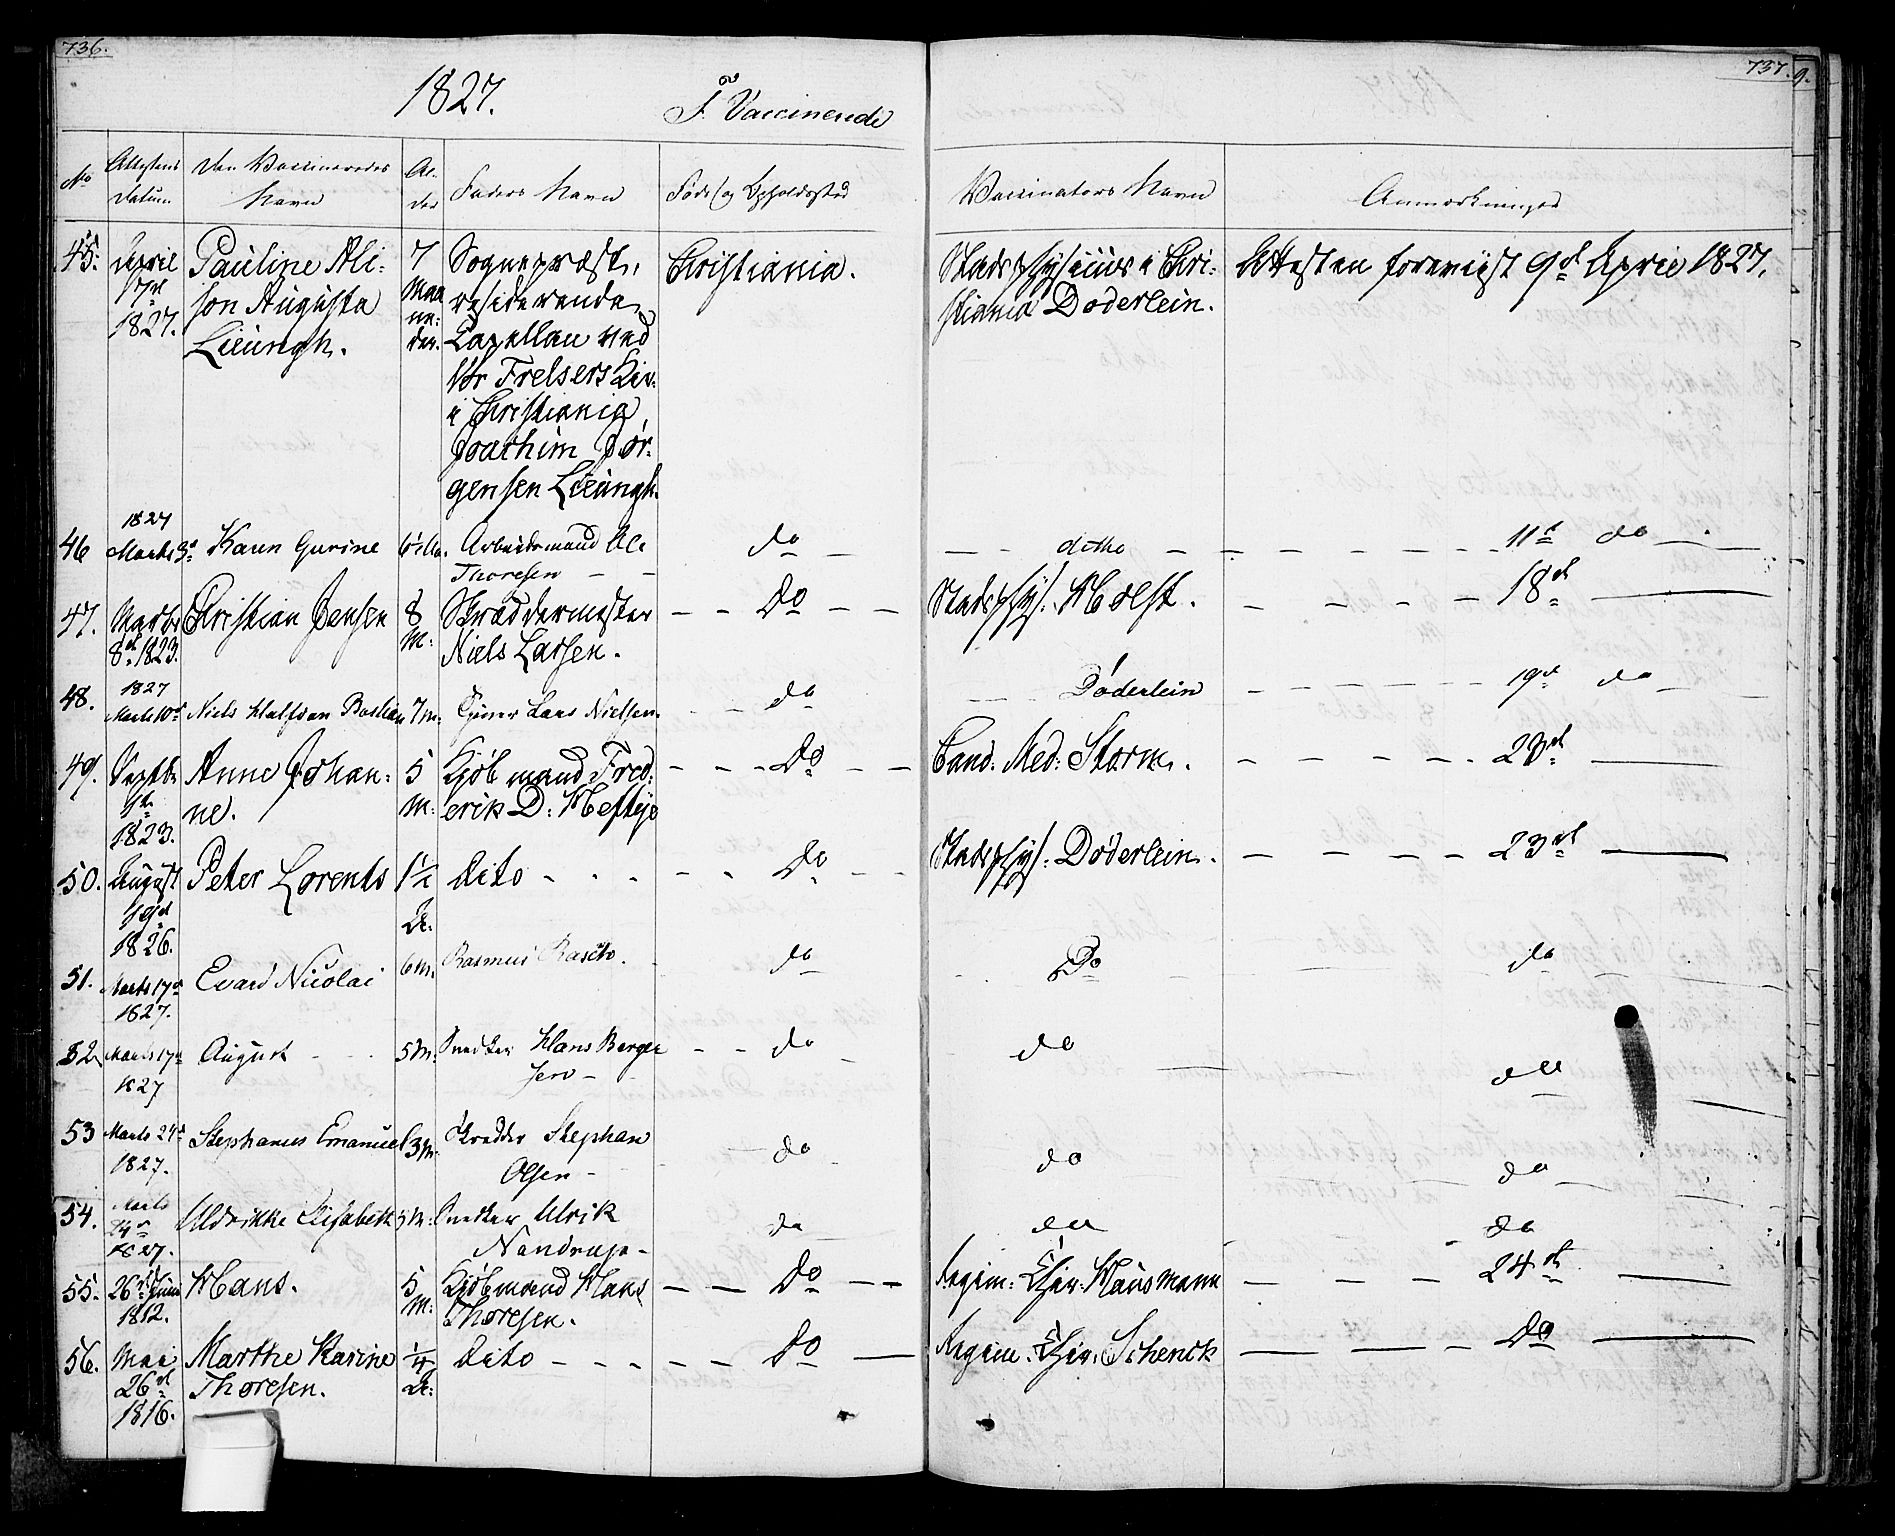 736.
737.
9.
1827.
F. Vaccinerede
No
Attestens Datum
Den Vaccineredes Navn
Al-
der
Faders Navn
Føde og Opholdssted
Vaccinators Navn
Anmærkninger
45.
April
17de
1827.
Pauline Ali-
son Augusta
Lieungh.
7
Maa
ne:
der.
Sognepræst,
residerende
Capellan ved
Vor Frelsers Kir:
i Christiania
Joachim Jør-
gensen Lieungh.
Christiania.
Stadsphysicus i Chri-
stiania Døderlein.
Attesten foreviist 9d April 1827.
46
1827
Marts 3d
Karen Gurine
Arbeidsmand Ole
Thoresen
do
ditto
11d do
47.
Marts
8d 1823.
Christian Jensen
8
M:
Skræddermester
Niels Larsen.
Do
Stadsphys. Holst.
18d
48.
1827
Marts 10d
Niels Halfdan Bastian
7m:
Lars Nielsen
do
Døderlein
19d do
49.
Septbr
1d
1823.
Anne Johan-
ne.
5
M:
Kjøbmand Fred:
erik D: Heftye
Do
Cand: Med: Storm.
23d
50.
August
19d
1826.
Peter Lorents
1½
Dito
Do
Stadsphys: Døderlein.
23d
51.
Marts 17d
1827.
Evard Nicolai
6m.
Rasmus
do
Do
do
52
Marts 17d
1827
August
5M.
Snedker Hans Berger
sen
do
do
do
53
Marts 24d
1827.
Stephanus Emanuel
3M.
Skrædder Stephan
Olsen
do
do
do
54.
Marts
24d
1827.
Uldrikke Elisabeth
5M:
Snedker Ulrik
Nandrup
do
do
do
55.
26d Juni
1812.
Hans.
5
M:
Kjøbmand Hans
Thoresen.
Do
Regim: Chir: Hausmann
24d
56.
Mai
26d
1816.
Marthe Karine
Thoresen.
¼
Dito
Do
Regim: Chir: Schenck
Do